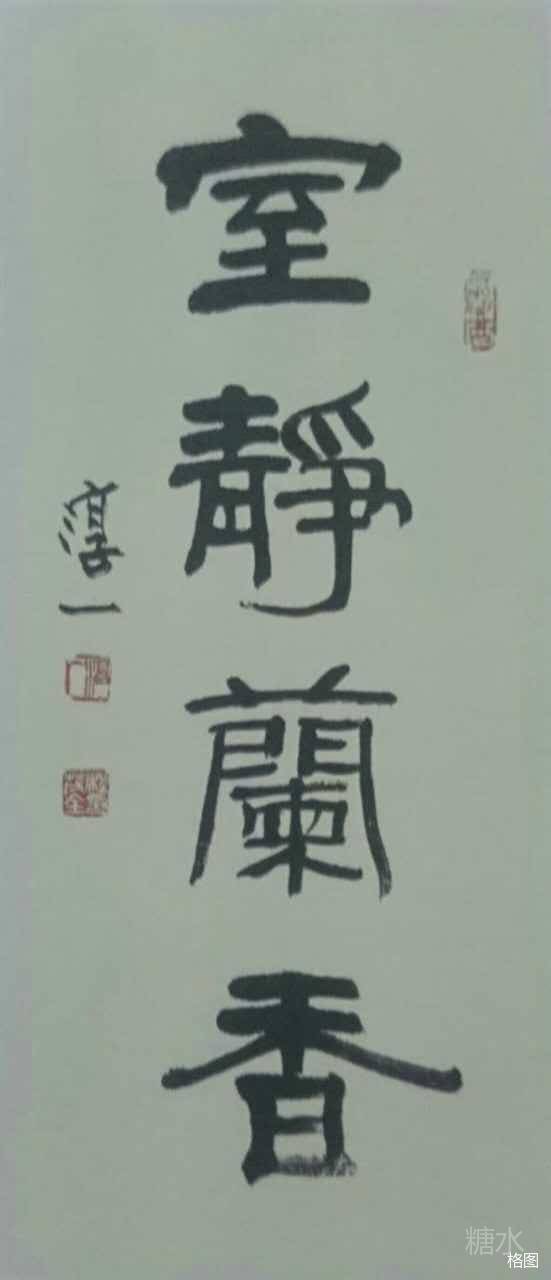 室靜蘭香
淳一
糖水
格图